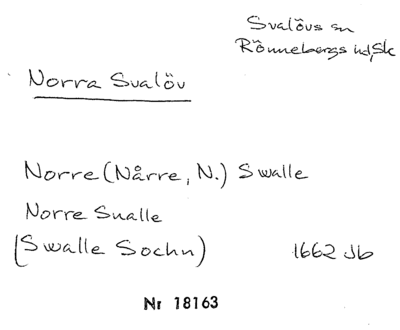 Svalövs sn
Rönnebergs hd, Sk
Norra Svalöv
Norre (Nårre, N.) Swalle
Norre Sualle
(Swalle Sochn) 1662 Jb
Nr 18163